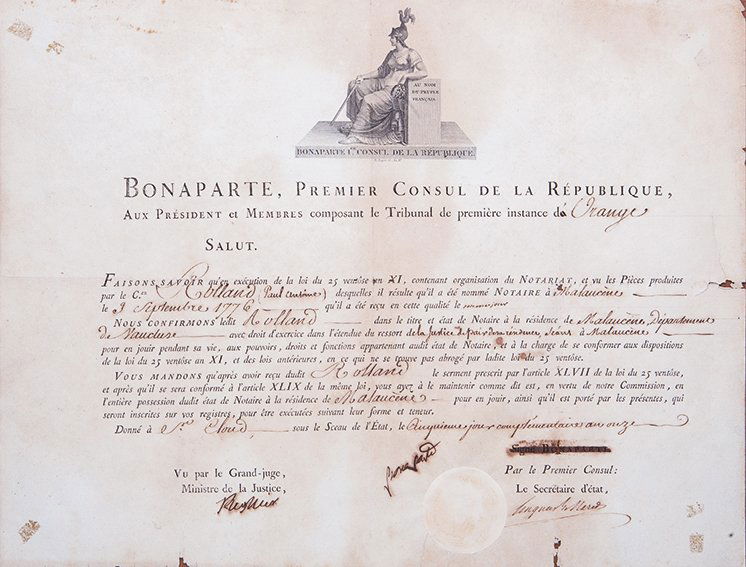 AU NOM
DU PEUPLE
FRANÇAIS.
BONAPARTE I.ER CONSUL DE LA RÉPUBLIQUE.
BONAPARTE, PREMIER CONSUL DE LA RÉPUBLIQUE,
AUX PRÉSIDENT et MEMBRES composant le Tribunal de première instance d'Orange
SALUT.
FAISONS SAVOIR qu'en exécution de la loi du 25 ventôse an XI, contenant organisation du NOTARIAT, et vu les Pièces produites
par le C.en Rolland (Paul Antoine) desquelles il résulte qu'il a été nommé NOTAIRE à Malaucène
le 3 Septembre 1776 qu'il a été reçu en cette qualité le
NOUS CONFIRMONS ledit Rolland dans le titre et état de Notaire à la résidence de Malaucène, Département
de Vaucluse avec droit d'exercice dans l'étendue du ressort de la Justice de paix de Malaucène
pour en jouir pendant sa vie, aux pouvoirs, droits et fonctions appartenant audit état de Notaire, et à la charge de se conformer aux dispositions
de la loi du 25 ventôse an XI, et des lois antérieures, en ce qui ne se trouve pas abrogé par ladite loi du 25 ventôse.
VOUS MANDONS qu'après avoir reçu dudit Rolland le serment prescrit par l'article XLVII de la loi du 25 ventôse,
et après qu'il se sera conformé à l'article XLIX de la même loi, vous ayez à le maintenir comme dit est, en vertu de notre Commission, en
l'entière possession dudit état de Notaire à la résidence de Malaucène pour en jouir, ainsi qu'il est porté par les présentes, qui
seront inscrites sur vos registres, pour être exécutées suivant leur forme et teneur.
Donné à St Cloud, sous le Sceau de l'État, le cinquième jour complémentaire an onze
Signé BONAPARTE
Bonaparte
VU par le Grand-juge,
Ministre de la Justice,
Regnier
Par le Premier Consul:
Le Secrétaire d'état,
Hugues B. Maret